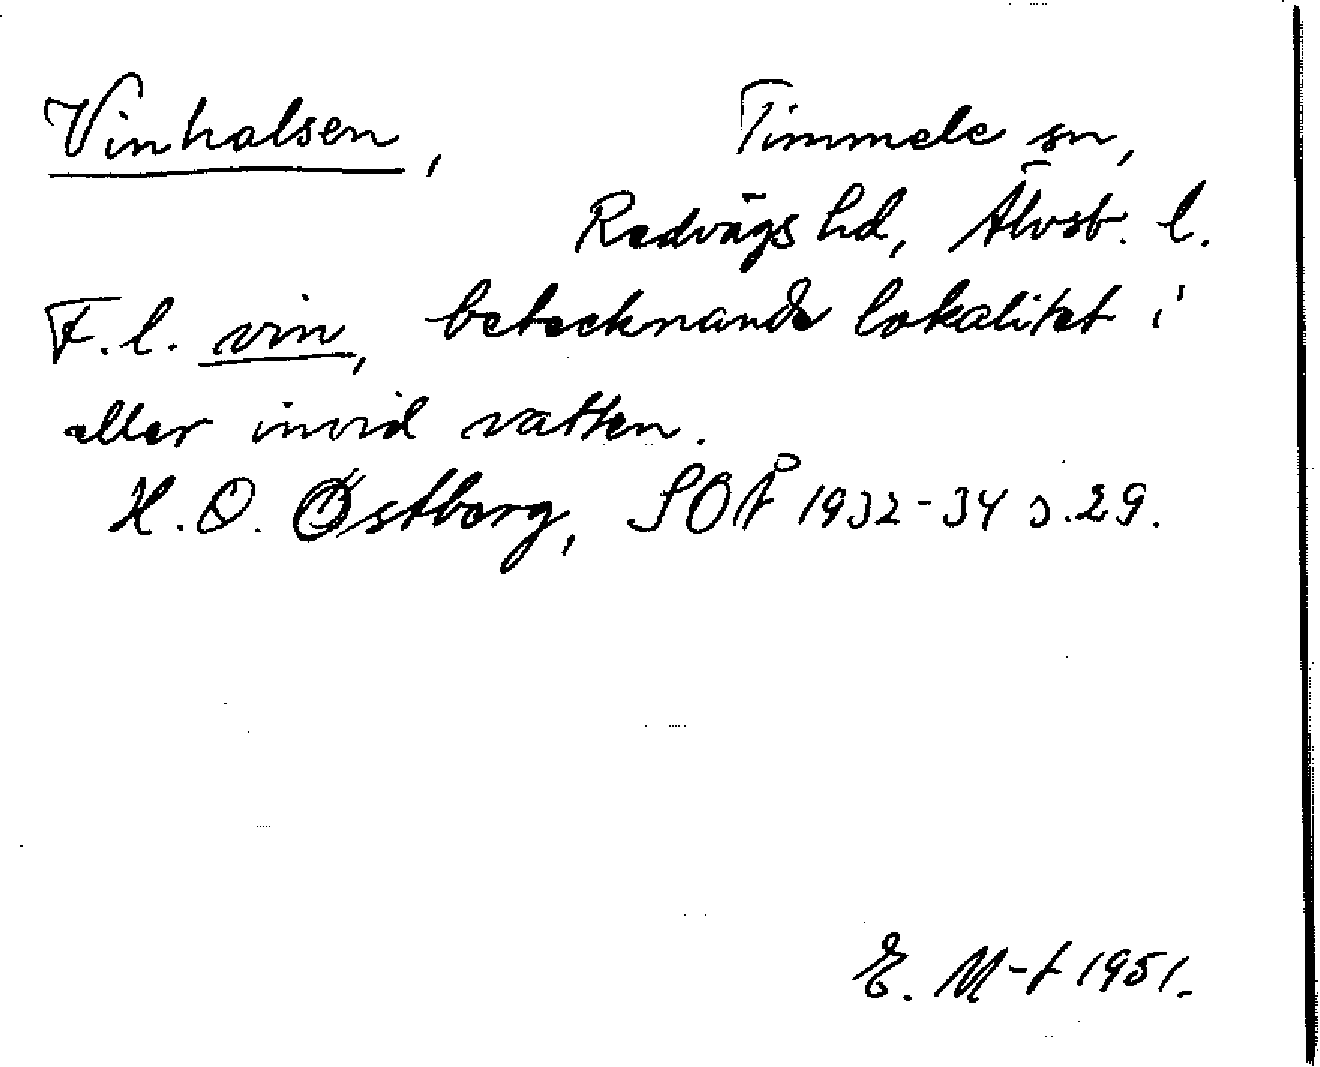 Vinhalsen, Timmele sn,
Redvägs hd, Älvsb. l.
F. l. vin, betecknande lokalitet i
eller invid vatten.
H. O. Østberg, SOÅ 1932-34 s. 29.
E. M-t 1951.